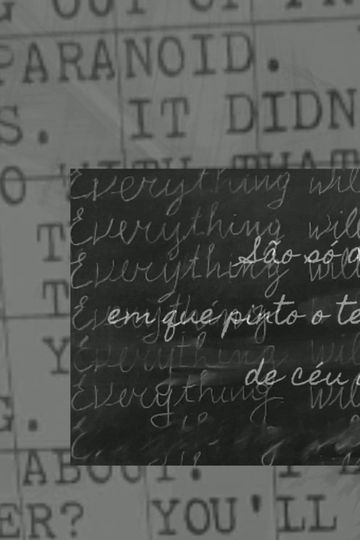 G OUT OF
PARANOID.
S. IT DIDN
O WITH THAT
Everything will
Everything will
São só
Everything will
em que pinto o te
Everything wil
de céu
Everything will
G.
ABOUT. I
ER? YOU'LL